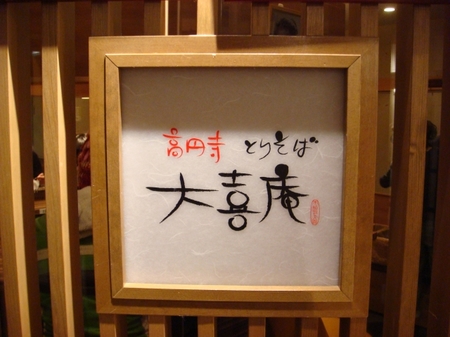 高円寺 とりそば
大喜庵